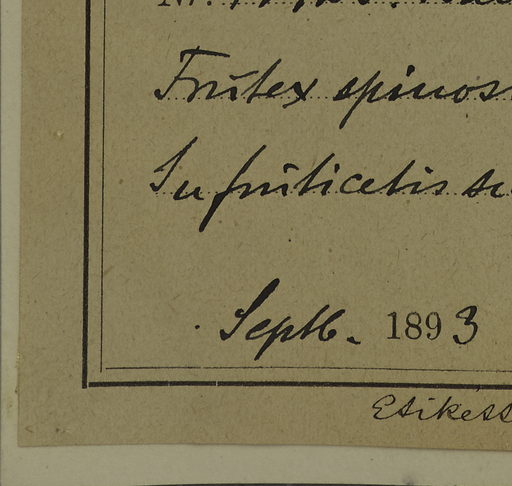 Frutex spinos
In fruticetis su
Septb. 1893